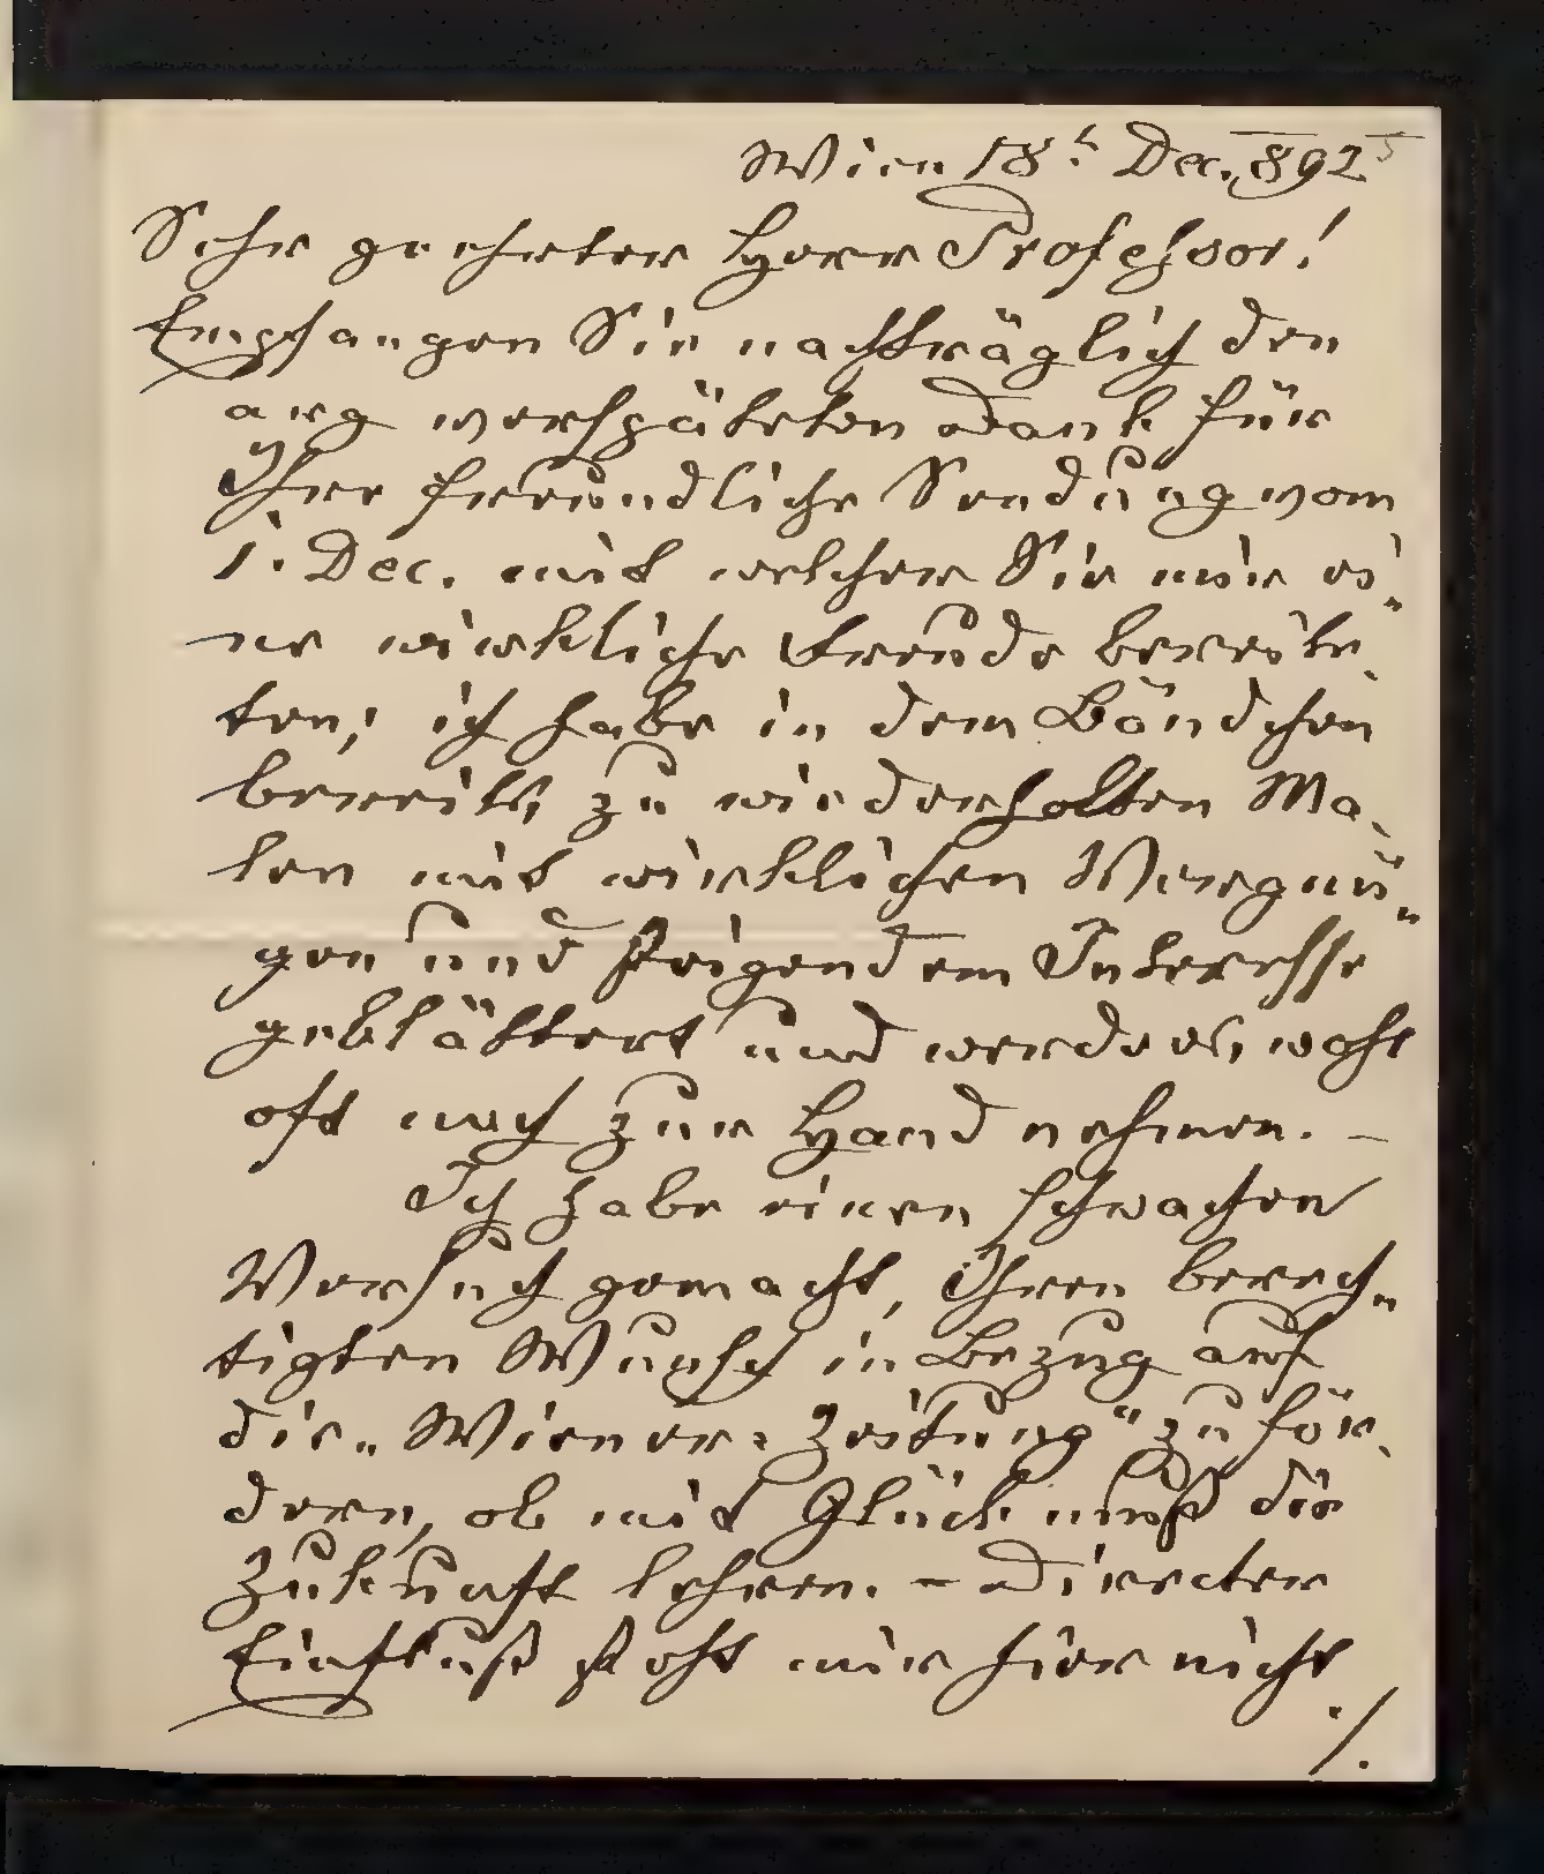 Wien 18t. Dec. 892
Sehr geehrter Herr Professor!
Empfangen Sie nachträglich den
arg verspäteten Dank für
Ihre freundliche Sendung vom
1. Dec. mit welcher Sie mir ei„
ne wirkliche Freude bereite„
ten; ich habe in dem Bändchen
bereits zu wiederholten Ma„
len mit wirklichen Vergnü„
gen und steigendem Interesse
geblättert und werde es wohl
oft noch zur Hand nehmen. –
Ich habe einen schwachen
Versuch gemacht, Ihren berech„
tigten Wunsch in Bezug auf
die „Wiener-Zeitung“ zu för„
dern, ob mit Glück muß die
Zukunft lehren. – Directer
Einfluß steht mir hier nicht
./.